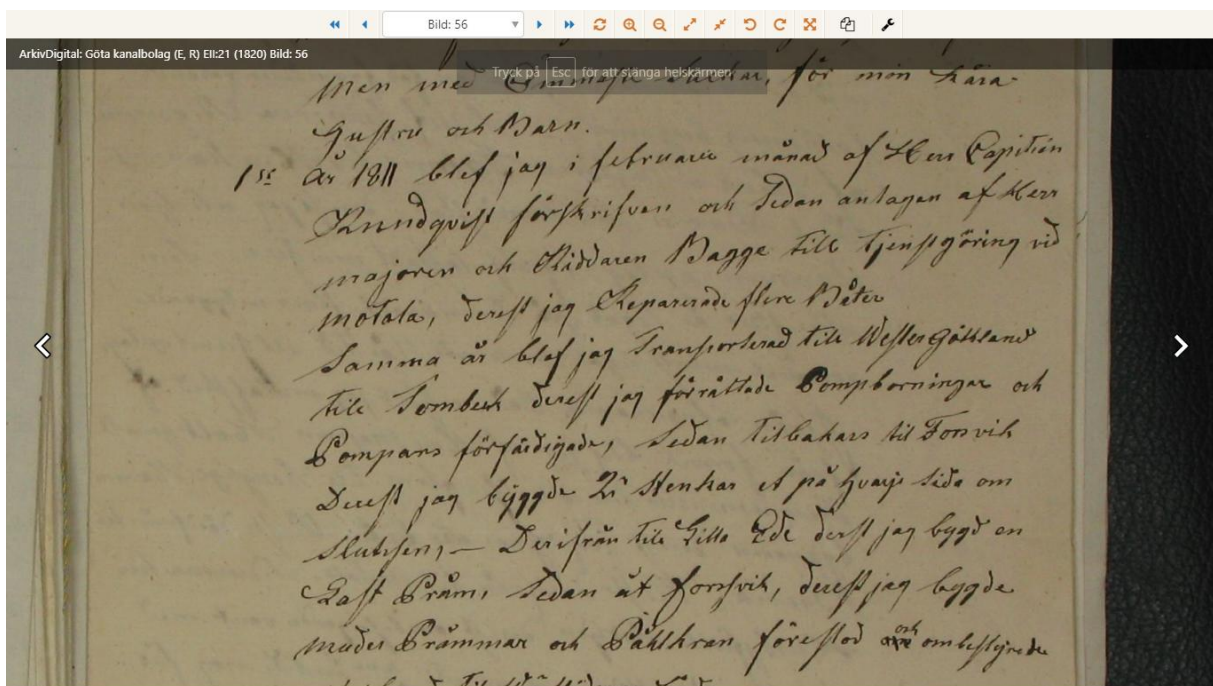 Bild: 56
ArkivDigital: Göta kanalbolag (E, R) EII:21 (1820) Bild: 56
Tryck på Esc för att stänga helskärmen
men med Ömmaste för min kära
Hustru och Barn.
1st År 1811 blef jag i februarii månad af Herr Capitén
Rundqvist förskrifven och sedan antagen af Herr
majoren och Riddaren Bagge till tjenstgöring vid
motala, derest jag Reparerade flere Båter
Samma år blef jag Transporterad till WesterGöthland
till derest jag förrättade Pompborningar och
Pompars förfärdigade, Sedan tilbakars til Forsvik
Derest jag byggde 2ne Stenkar et på hvarje Sida om
Slutssen, — Derifrån till Lilla Ede derest jag bygd en
Last Pråm, Sedan åt forssvik, derest jag byggde
muder Prammar och Påhlkran förestod och ombestyrede